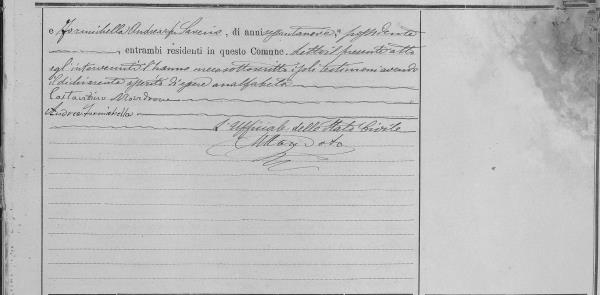 e Formichella Andrea fu Saverio, di anni settantanove, possidente
, entrambi residenti in questo Comune. Letto il presente atto
agli intervenuti l'hanno meco sottoscritto i soli testimoni avendo
il dichiarante asserito d'essere analfabeta
Costantino
Andrea Formichella
L'Ufficiale dello Stato Civile